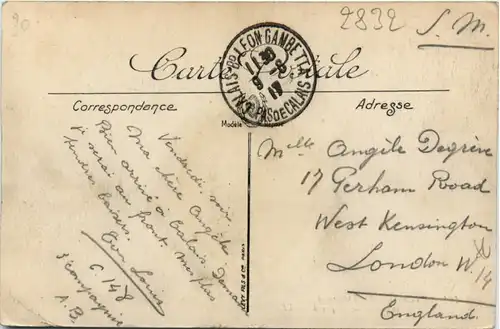 2832
S. M.
Carte Postale
CALAIS Bd LEON GAMBETTA
11 30
8
19
PAS DE CALAIS
Correspondance
Adresse
Modèle
Vendredi soir
Ma chère Angèle
Bien arrivé à Calais. Demain
je serai au front. mes plus
tendres baisers.
Ton Louis
C 148
3e compagnie
A. B.
LEVY FILS & Cie PARIS
Melle Angèle Degrève
17 Perham Road
West Kensington
London W. 14
England.